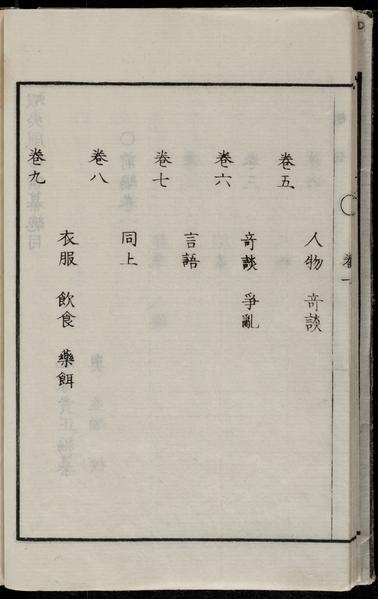 人物 奇談
巻五
奇談 爭亂
巻六
言語
巻七
同上
巻八
衣服 飲食 藥餌
巻九